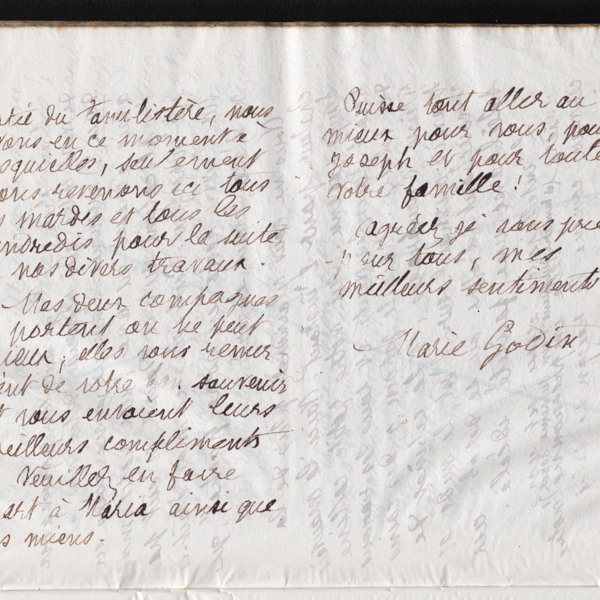 rtie du Familistère, nous
vons en ce moment à
squielles, seulement
ous revenons ici tous
s mardis et tous les
endredis pour la suite
nos divers travaux.
Mes deux compagnes
portent on ne peut
ieux, elles vous remer
ient de votre bon souvenir
t vous envoient leurs
eilleurs compliments
Veuillez en faire
art à Maria ainsi que
s miens.
Puisse tout aller au
mieux pour vous, pou
Joseph et pour toute
votre famille!
Agréez je vous prie
pour tous, mes
meilleurs sentiments
Marie Godin